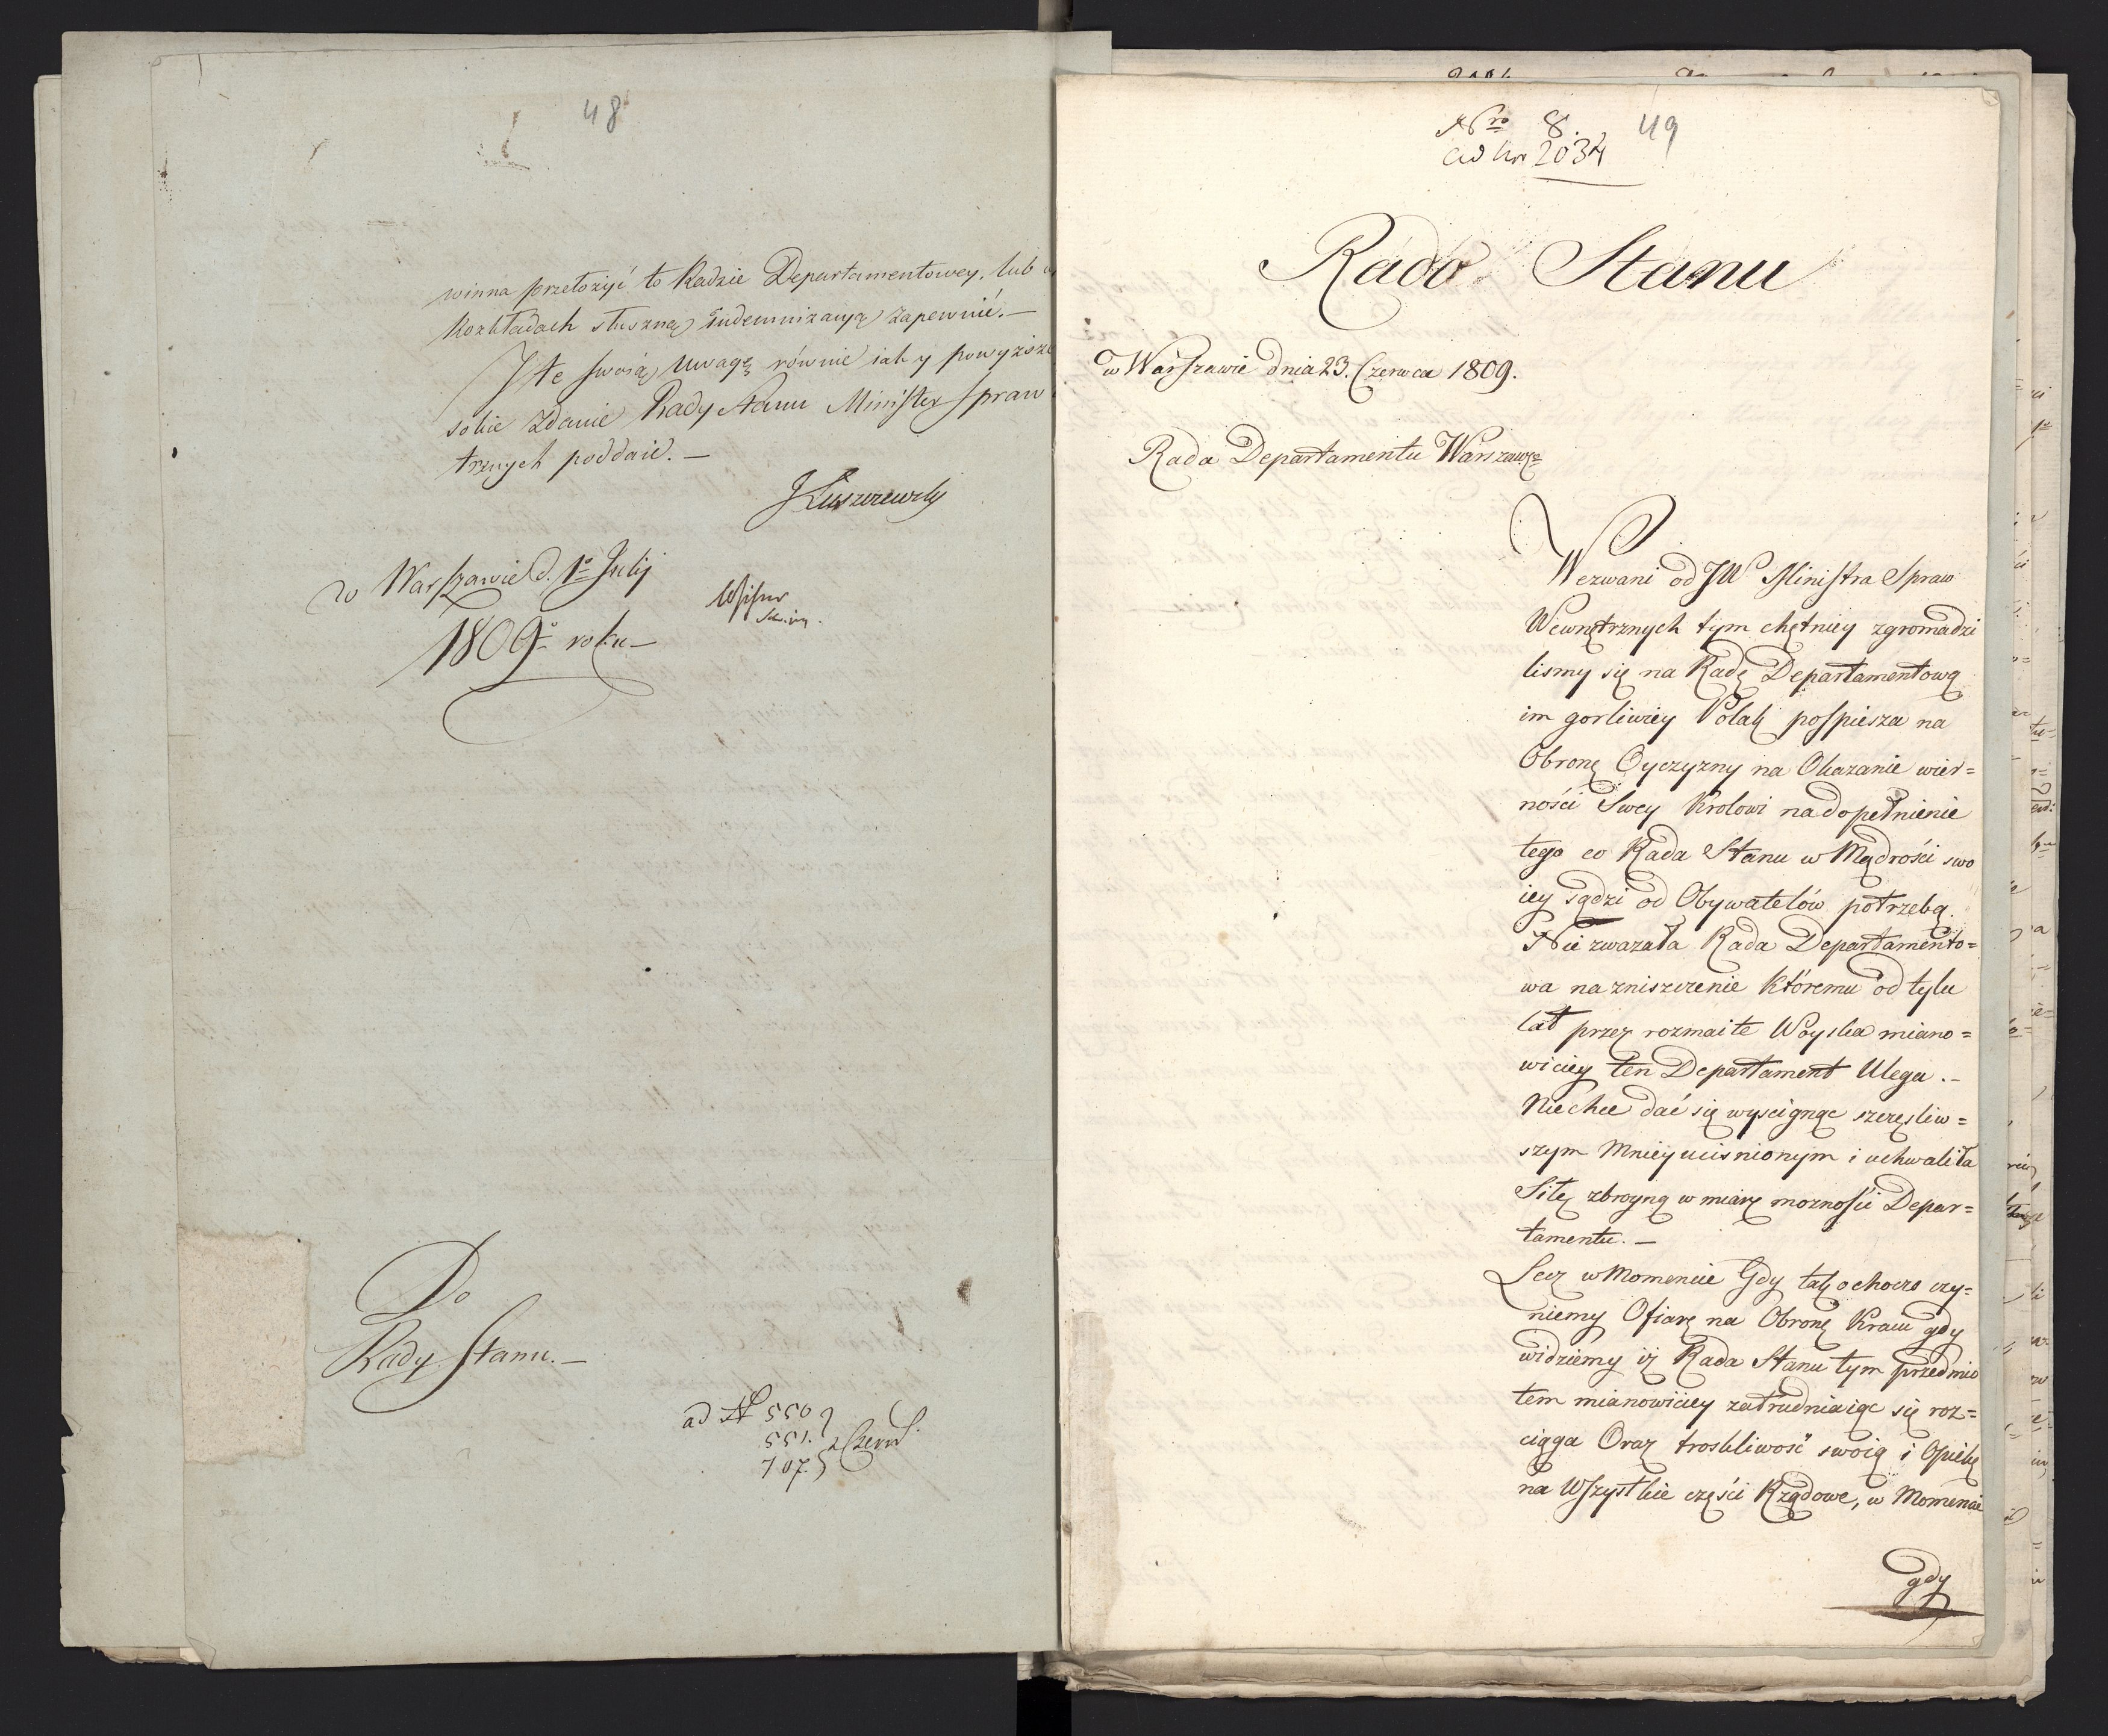 48
winna przełożyć to Radzie Departamentowey, lub
Rozkładach słuszną indemnizacyą zapewnić.—
Jte swoią uwagę równie iak y powyższe
sobie zdanie Rady Stanu Minister Spraw
trznych poddaie.—
JŁuszczewsky
w Warszawie d. 1º Julij
1809º roku—
Do
Rady Stanu.—
ad N 550
551.
707.
z Czerw.
Nro 8.
49
ad Nr 2034
Rado Stanu
w Warszawie dnia 23. Czerwca 1809.
Rada Departamentu Warszawgo
Wezwani od JW Ministra Spraw
Wewnętrznych tym chętniey zgromadzi
lismy się na Radę Departamentową
im gorliwiey Polak pospiesza na
Obronę Oyczyzny na Okazanie wier=
ności Swey Krolowi na dopełnienie
tego co Rada Stanu w Mądrości swo
iey sądzi od Obywatelów potrzebą.
Nie zwazała Rada Departamento=
wa na zniszczenie któremu od tylu
lat przez rozmaite Woyska miano=
wiciey ten Departament Ulega.–
Niechce dać się wyscignąc szczęsliw=
szym Mniey ucisnionym i uchwaliła
Siłę zbroyną w miarę mozności Depar=
tamentu.—
Lecz w Momencie Gdy tak ochoczo czy=
niemy Ofiarę na Obronę Kraiu gdy
widziemy iż Rada Stanu tym przedmio
tem mianowiciey zatrudniaiąc się roz=
ciąga Oraz troskliwość swoią i Opiekę
na Wszystkie części Rządowe, w Momencie
gdy